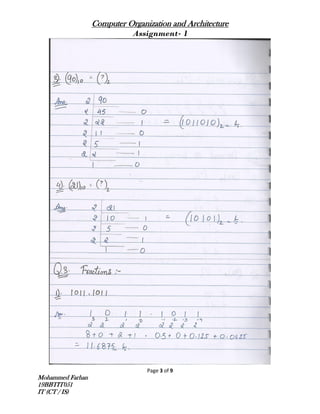 Computer Organization and Architecture
Assignment- 1
3) (90)10 = (?)2
Ans 2 90
2 45 — 0
2 22 — 1 = (1011010)2
2 11 — 0
2 5 — 1
2 2 — 1
1 — 0
4) (21)10 = (?)2
Ans 2 21
2 10 — 1 = (10101)2
2 5 — 0
2 2 1
1 0
Q3. Fractions :-
1). 1011.1011
1 0 1 1 . 1 0 1 1
8+0 + 2 + 1 . 0.5 + 0 + 0.125 + 0.0625
= 11.6875
Page 3 of 9
Mohammed Farhan
19BBTIT051
IT (CT / IS)